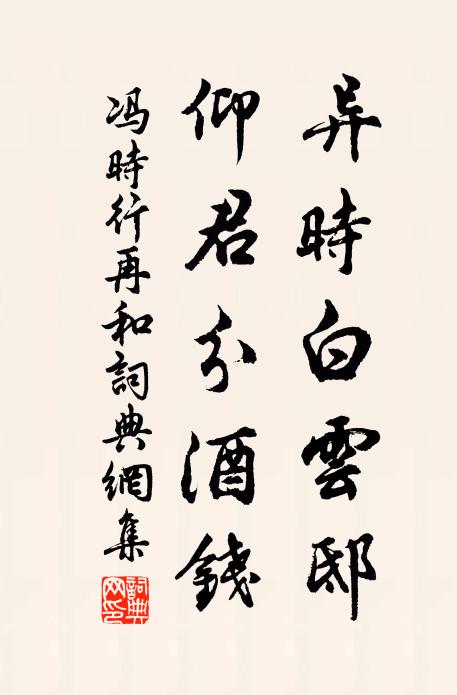 异時白雲邸
仰君分酒錢
冯時行再和詞典網集
詞典網印